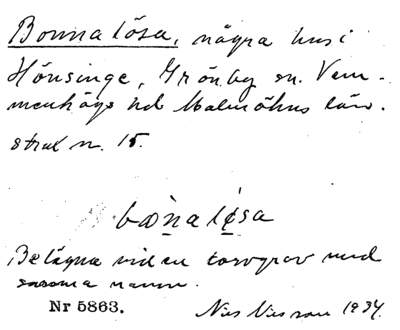 Bonnalösa, några hus i
Hönsinge, Grönby sn. Vem-
menhögs hd Malmöhus län.
strax n. 15.
Belägna vid en torvgrav med
samma namn.
Nr 5863.
Nils Nilsson 1934.